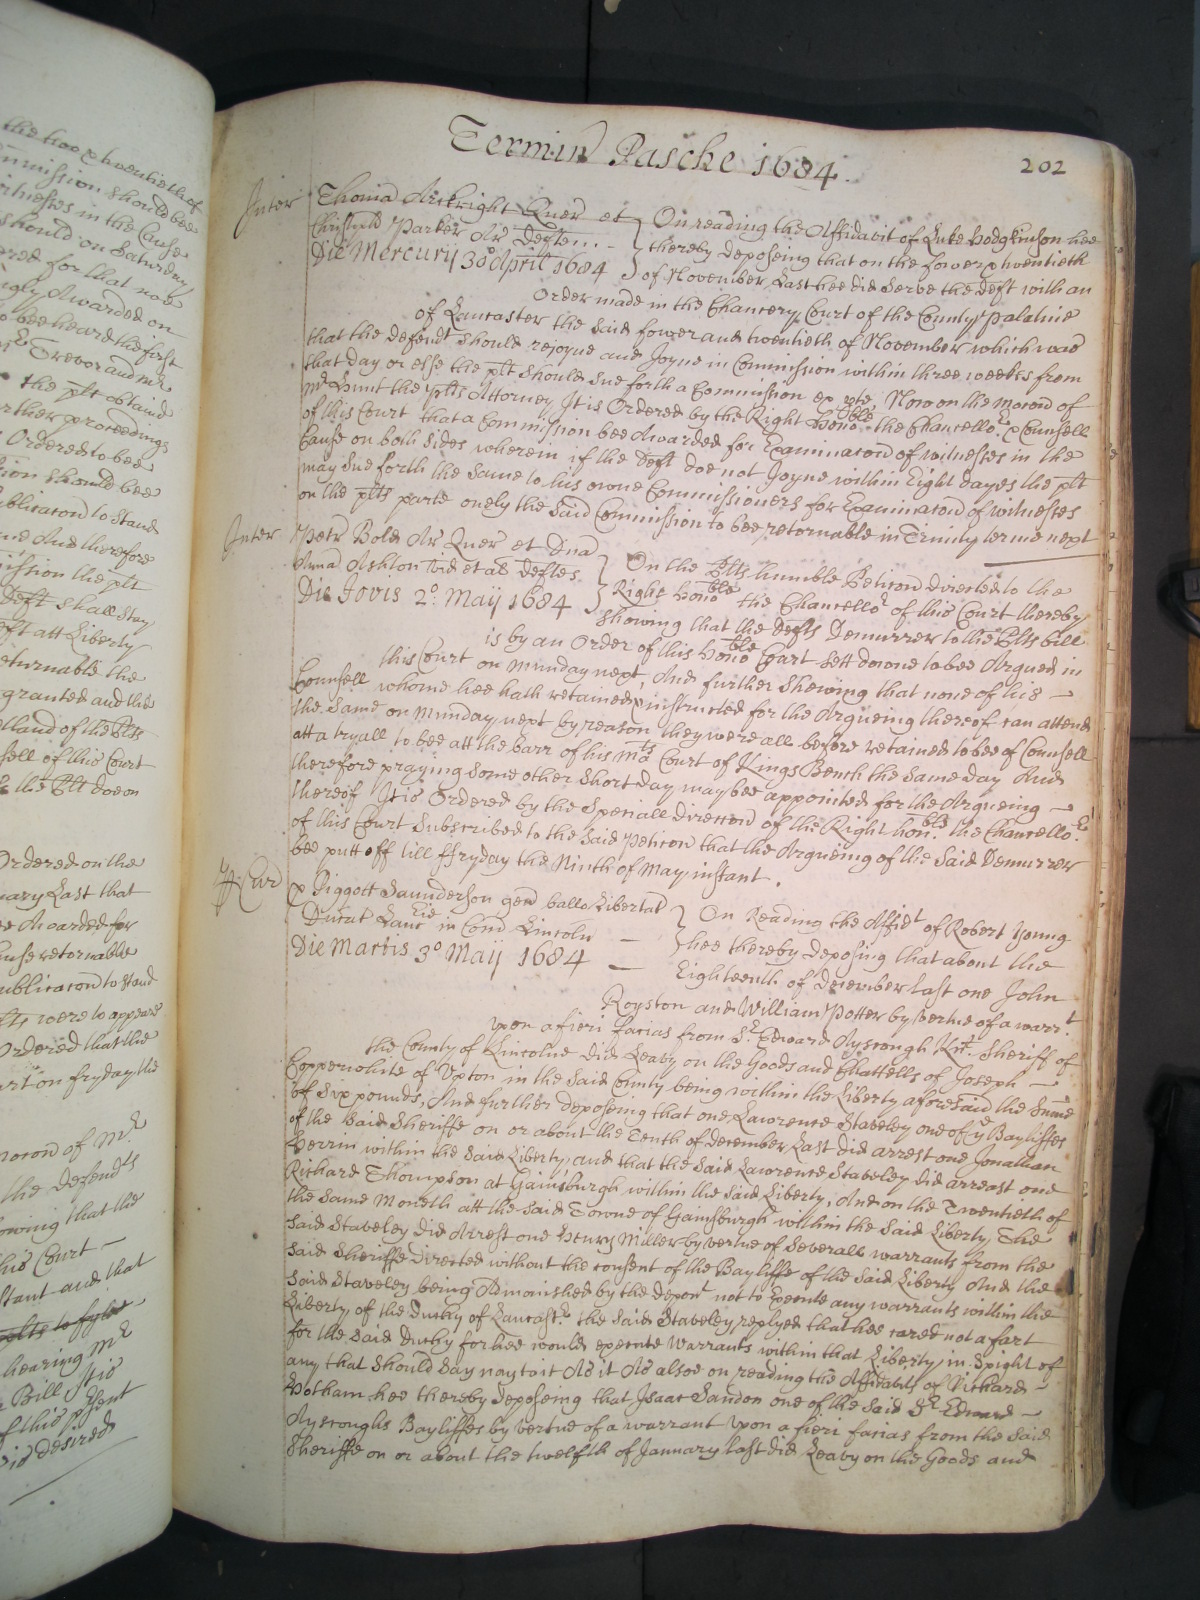 Termino Pasche 1684
202
Inter Thoma Arkright Quer et
Christopho Parker Ar Deften
Die Mercurij 30º Aprill 1684
On reading the Affidavit of Luke Hodgkinson hee
thereby deposeing that on the fower & twentieth
of November Last hee did serve the Deft with an
Order made in the Chancery Court of the County Palatine
of Lancaster the said fower and twentieth of November which was
that the Defendt should rejoyne and Joyne in Commission within three weekes from
that day or else the plt should sue forth a Commission ex pte, Now on the mocon of
Mr Hunt the plts Attorney It is Ordered by the Right honoble the Chancellor & Counsell
of this Court that a Commission bee Awarded for Examinacon of witnesses in the
Cause on both sides wherein if the Deft doe not Joyne within Eight dayes the plt
may sue forth the same to his owne Commissioners for Examinacon of witnesses
on the plts parte onely the said Commission to bee returnable in Trinity terme next
Inter Petr Bold Ar Quer et Dna
Anna Ashton vid et al Deftes
Die Jovis 2º Maij 1684
On the Plts humble Peticon directed to the
Right honoble the Chancellor of this Court thereby
shewing that the Defts Demurrer to the Plts bill
is by an Order of this honoble Court sett downe to bee Argued in
this Court on Munday next, And further shewing that none of his
Counsell whome hee hath retained & instructed for the Argueing thereof can attend
the same on Munday next by reason they were all before retained to bee of Counsell
att a tryall to bee att the barr of his Mats Court of Kings Bench the same day And
therefore praying some other short day may bee appointed for the Argueing
thereof It is Ordered by the Speciall direccon of the Right honble the Chancellor
of this Court Subscribed to the said Peticon that the Argueing of the said Demurrer
bee putt off till ffryday the Ninth of May instant.
Piggott Saunderson gen ballo Libertat
Ducat Lanc in Com Lincoln
Die Martis 3º Maij 1684
On Reading the Affidt of Robert Young
hee thereby deposing that about the
Eighteenth of December last one John
Royston and William Potter by vertue of a warrt
upon a fieri facias from Sr Edward Ayscough Knt. Sheriff of
the County of Lincolne did Leavy on the Goods and Chattells of Joseph
Copperwhite of Upton in the said County being within the Liberty aforesaid the Sume
of Six pounds, And further deposeing that one Lawrence Staveley one of ye Bayliffes
of the said Sheriffe on or about the Tenth of December Last did arrest one Jonathan
Herrin within the said Liberty, and that the said Lawrence Staveley did arreast one
Richard Thompson at Gainsburgh within the said Liberty, And on the Twentieth of
the same Moneth att the said Towne of Gainsburgh within the said Liberty, The
said Staveley did Arrest one Henry Miller by vertue of severall warrants from the
said Sheriffe directed without the consent of the Bayliffe of the said Liberty And the
said Staveley being Admonished by the Depont not to Execute any warrants within the
Liberty of the Duchy of Lancastr the said Staveley replyed that hee cared not a fart
for the said Duchy for hee would execute warrants within that Liberty in Spight of
any that should say nay to it As it As alsoe on reading the Affidavit of Richard
Hotham hee thereby deposeing that Isaac Sandon one of the said Sr Edward
Ayscoughs Bayliffes by vertue of a warrant upon a fieri facias from the said
Sheriffe on or about the twelfth of January last did Leavy on the Goods and